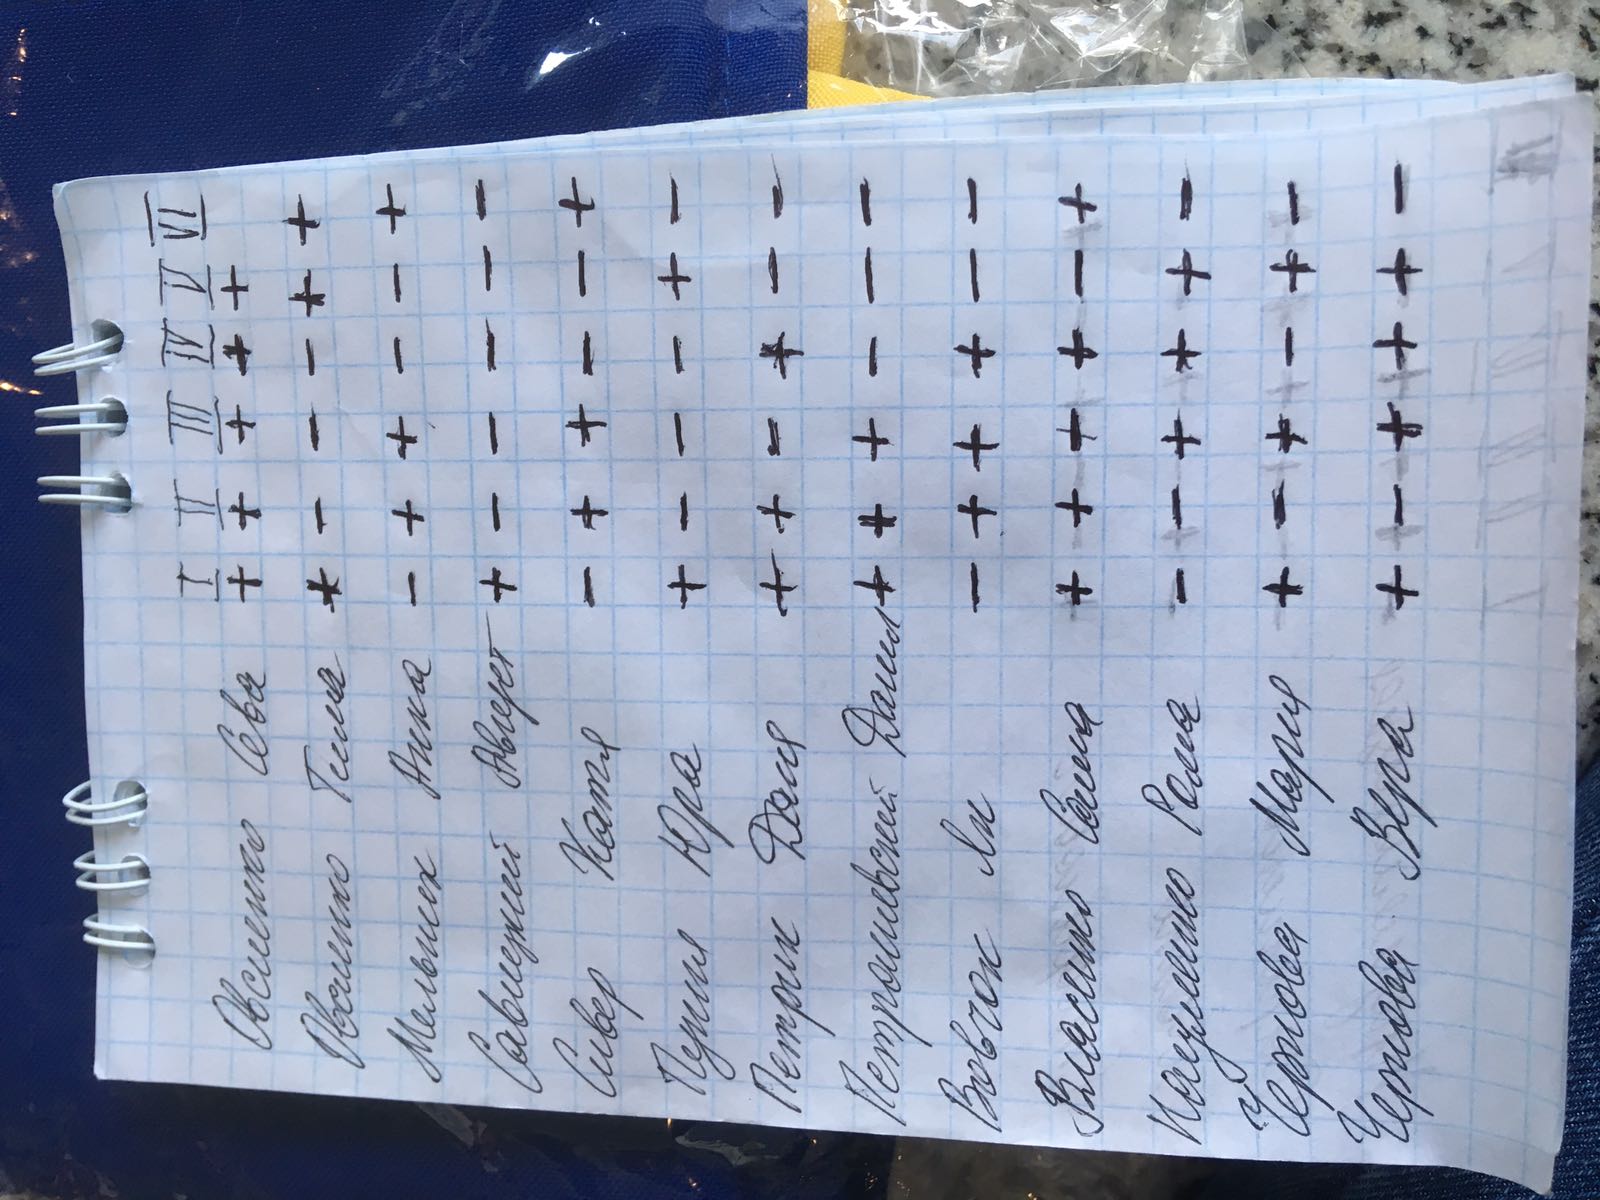 I II III IV V VI
Овсиенко Сева + + + + +
Овсиенко Тима + - - - + +
Мельник Аника - + + - - +
Савицкий Август + - - - - -
Сивер Катя - + + - - +
Пупия Юра + - - - + -
Петрик Даня + + - + - -
Петрошевский Данил + + + - - -
Вовчок Ли - + + + - -
Власенко Саша + + + + - +
Рома - - + + + -
Чернова Мария + - + - + -
Чернова Вера + - + + + -